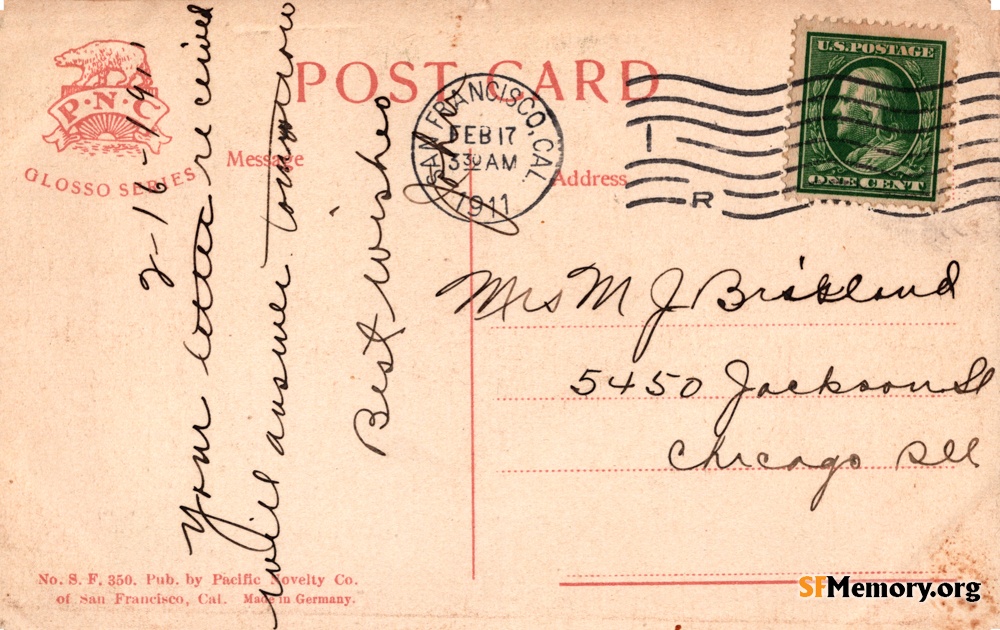 P·N·C
GLOSSO SERIES
POST CARD
Message
Address
SAN FRANCISCO, CAL.
FEB 17
3 30 AM
1911
R
U.S. POSTAGE
ONE CENT
2-16-1911
Your letter received
will answer tomorrow
Best wishes
Mrs M J
5450 Jackson St
Chicago Ill
No. S. F. 350. Pub. by Pacific Novelty Co.
of San Francisco, Cal. Made in Germany.
SFMemory.org